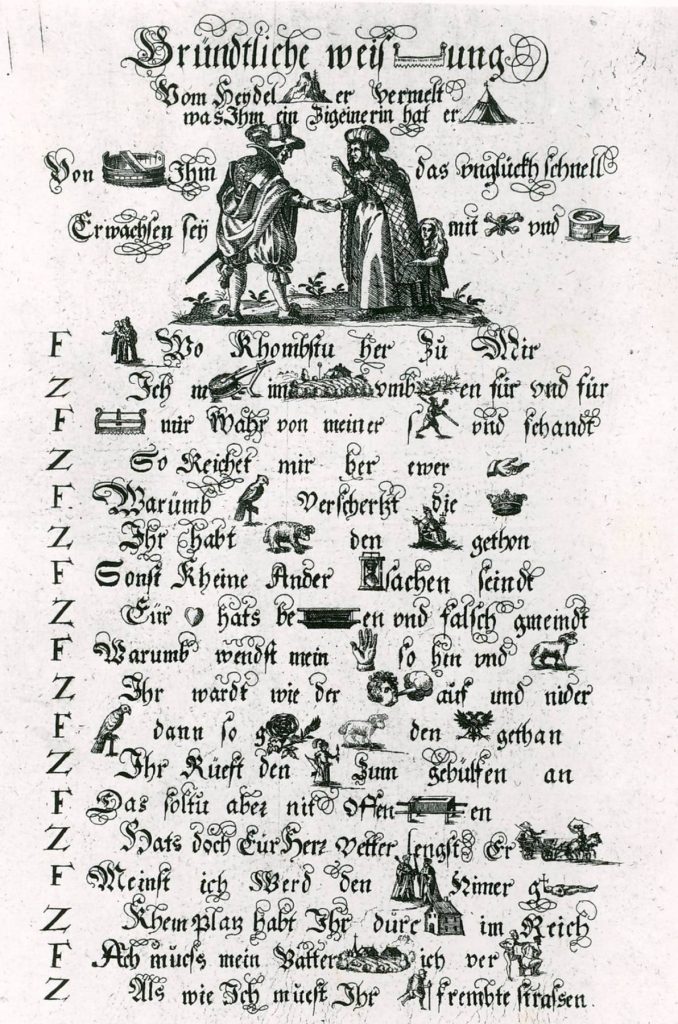 Gründtliche weis ung
Vom Heydel er vermelt
was Ihm ein Zigeinerin hat er
Von Ihm das vnglückh schnell
Erwachsen seÿ mit vnd
F Wo Khombstu her Zu Mir
Z Ich m im vmb en für vnd für
F mir Wahr von meiner s vnd schandt
Z So Reichet mir her ewer
F Warumb verschertzt die
Z Ihr habt den gethon
F Sonst Kheine Ander sachen seindt
Z Eür hats be en vnd falsch gmeindt
F Warumb wendst mein so hin vnd
Z Ihr wardt wie der auf und nider
F dann so g den gethan
Z Ihr Rüeft den Zum gehülfen an
F Das soltu aber nit offen en
Z Hats doch Eür Herr Vetter lengst Er
F Meinst ich Werd den Nimer g
Z Khein Platz habt Ihr durc im Reich
F Ach muess mein Vatter ich ver
Z Als wie Ich muest Ihr frembte strassen.